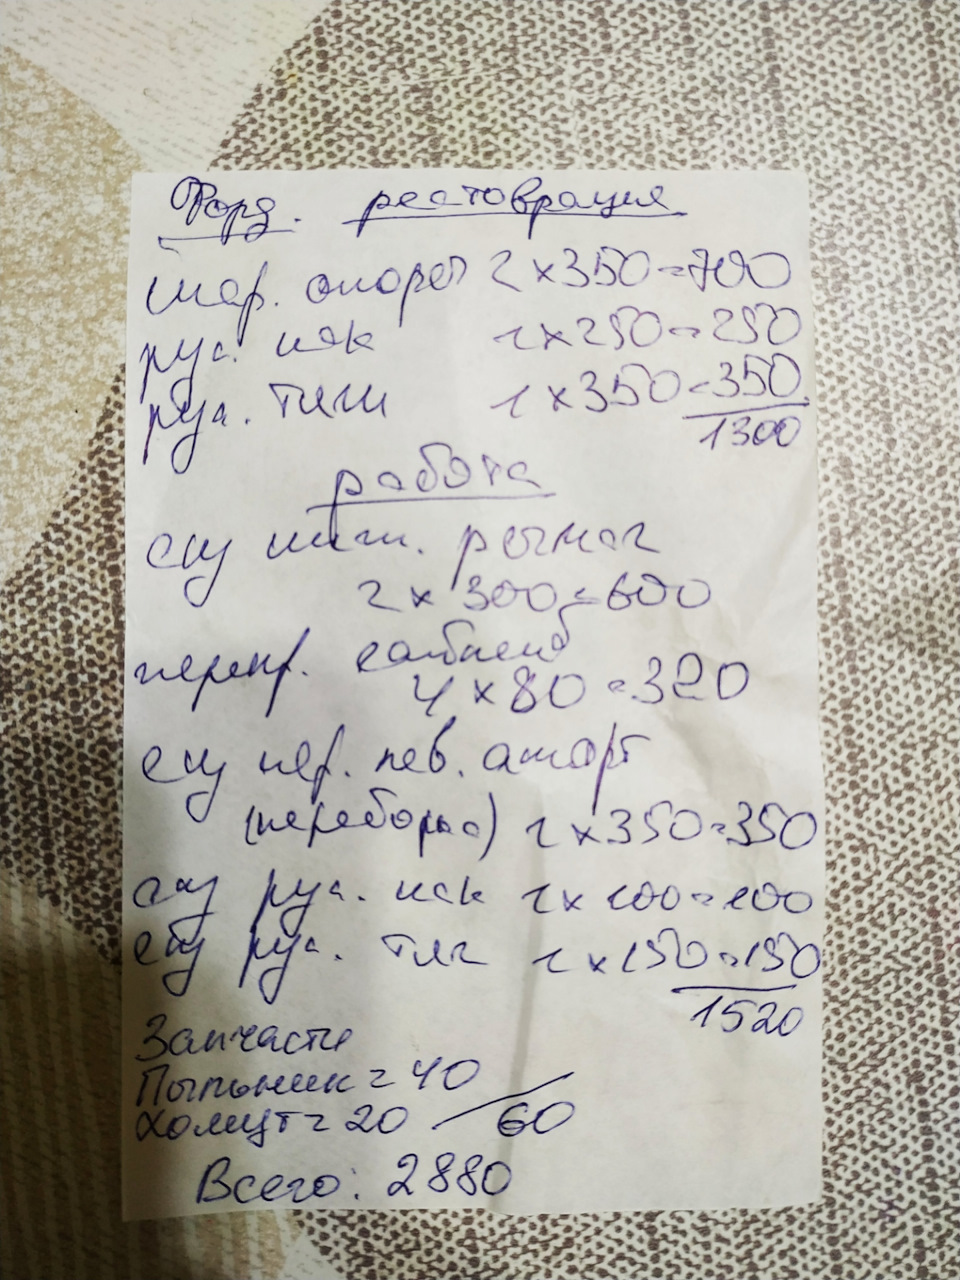 Форд. реставрация
шар. опоры 2 x 350 = 700
рул. нак 1 x 250 = 250
рул. тяги 1 x 350 = 350
1300
работа
с/у ниж. рычаг
2 x 300 = 600
перепр. сайлент
4 x 80 = 320
с/у пер. лев. аморт
(переборка) 1 x 350 = 350
с/у рул. нак 1 x 100 = 100
с/у рул. тяг 1 x 150 = 150
1520
Запчасти
Пыльник = 40
Хомут = 20 / 60
Всего: 2880